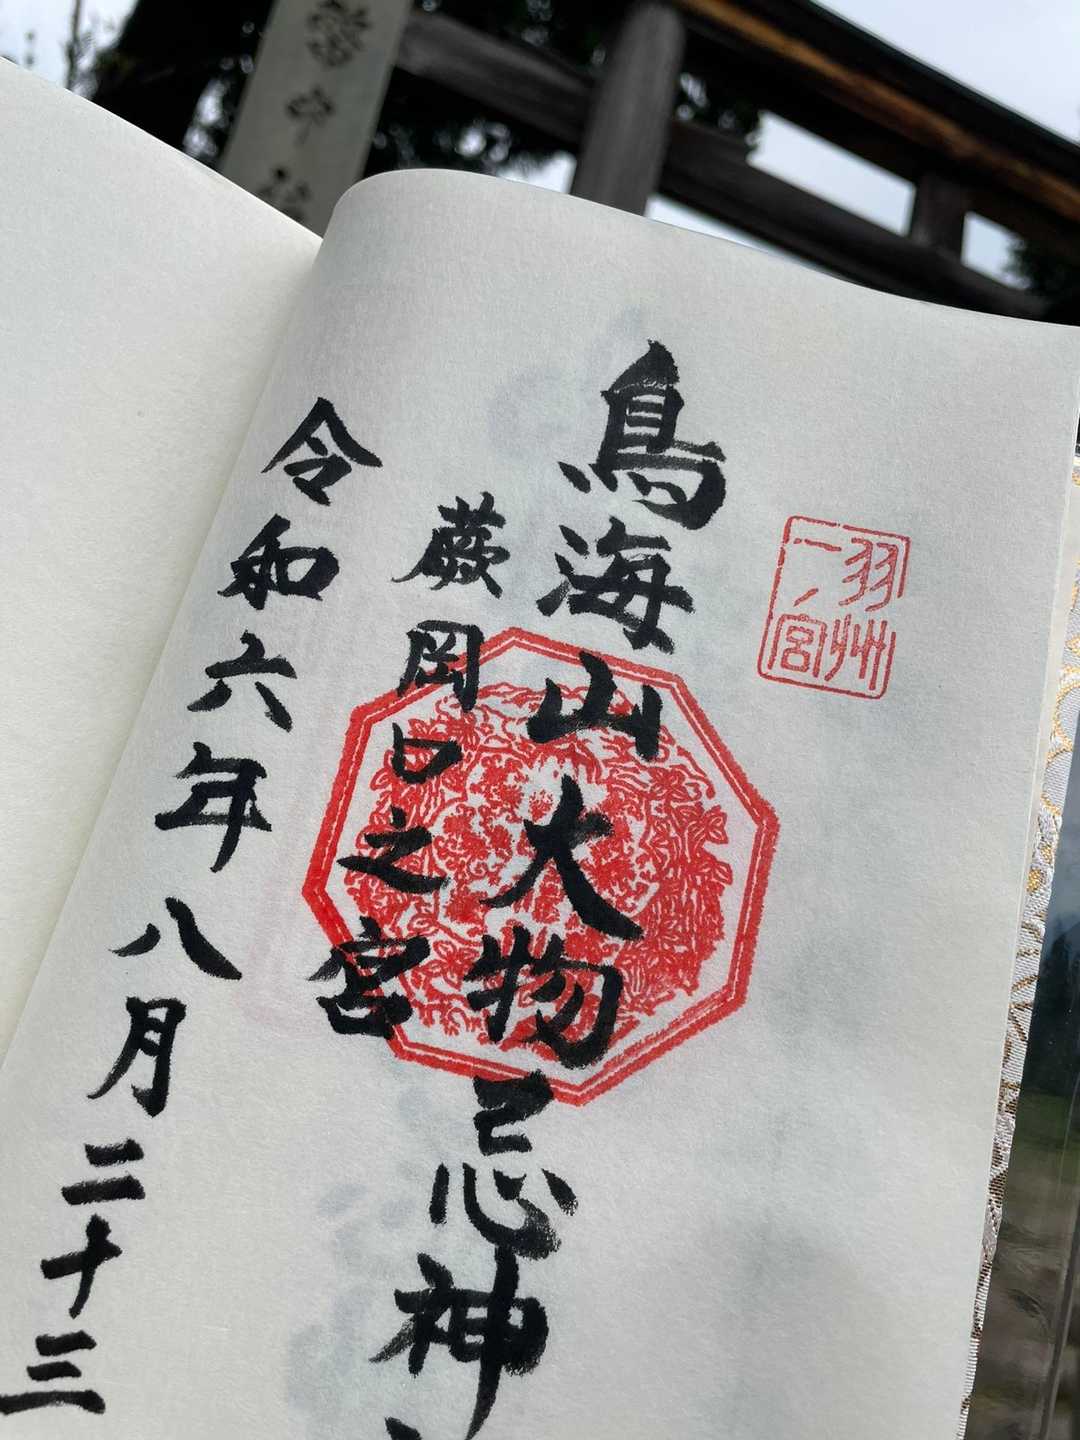 羽州
一ノ宮
鳥海山大物忌神
蕨岡口之宮
令和六年八月二十三